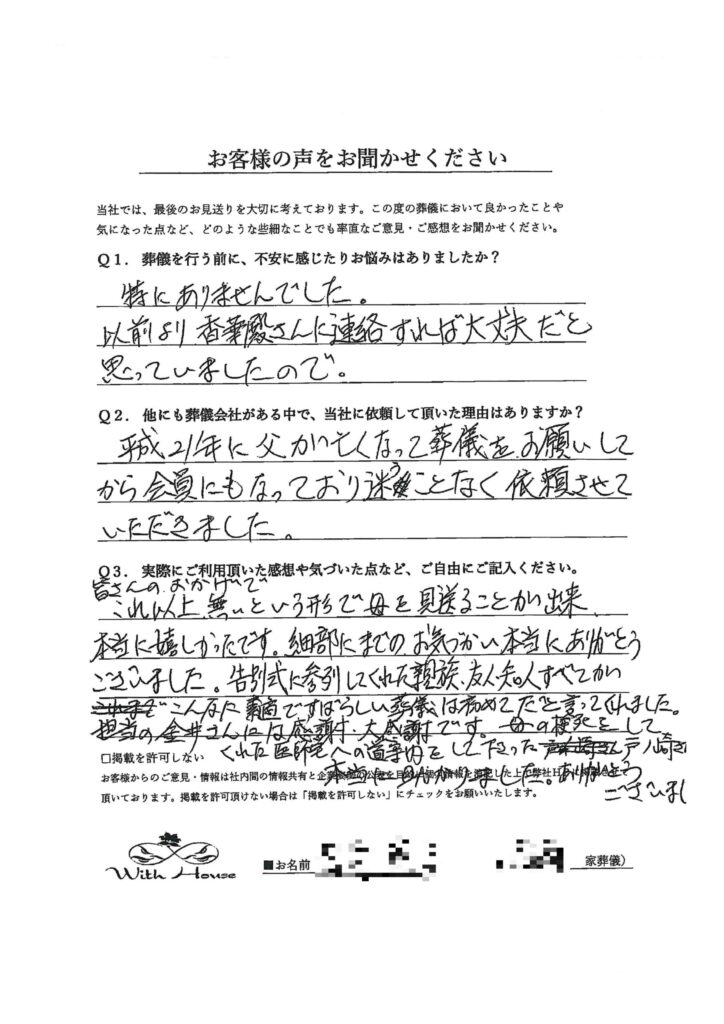 お客様の声をお聞かせください
当社では、最後のお見送りを大切に考えております。この度の葬儀において良かったことや
気になった点など、どのような些細なことでも率直なご意見・ご感想をお聞かせください。
Q1. 葬儀を行う前に、不安に感じたりお悩みはありましたか？
特にありませんでした。
以前より香華殿さんに連絡すれば大丈夫だと
思っていましたので。
Q2. 他にも葬儀会社がある中で、当社に依頼して頂いた理由はありますか？
平成21年に父が亡くなって葬儀をお願いして
から会員にもなっており迷うことなく依頼させて
いただきました。
Q3. 実際にご利用頂いた感想や気づいた点など、ご自由にご記入ください。
皆さんのおかげで
これ以上無いという形で母を見送ることが出来、
本当に嬉しかったです。細部にまでのお気づかい本当にありがとう
ございました。告別式に参列してくれた親族、友人知人すべてがい
こんなに素適ですばらしい葬儀は初めてだと言ってくれました。
担当の金井さんには感謝、大感謝です。母の検死をして
くれた医師宅への道案内をして下さった戸ノ崎さ
□掲載を許可しない
本当に助かりました。ありがとう
ございまし
お客様からのご意見・情報は社内間の情報共有と企業
頂いております。掲載を許可頂けない場合は「掲載を許可しない」にチェックをお願いいたします。
With House
■お名前
家葬儀）